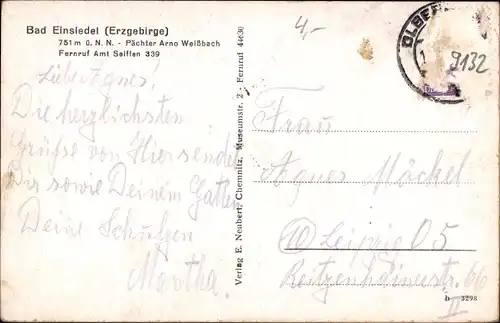 Bad Einsiedel (Erzgebirge)
751 m ü. N. N. - Pächter Arno Weißbach
Fernruf Amt Seiffen 339
4,-
OLBER
9132
Liebe Agnes!
Die herzlichsten
Grüße von Hier sendet
Dir sowie Deinem Gatten
Deine Schulzen
Martha.
Verlag E. Neubert, Chemnitz, Museumstr. 2 - Fernruf 44630
Frau
Agnes Möckel
10 Leipzig O5
Reitzenhainerstr. 66
II
b 3298